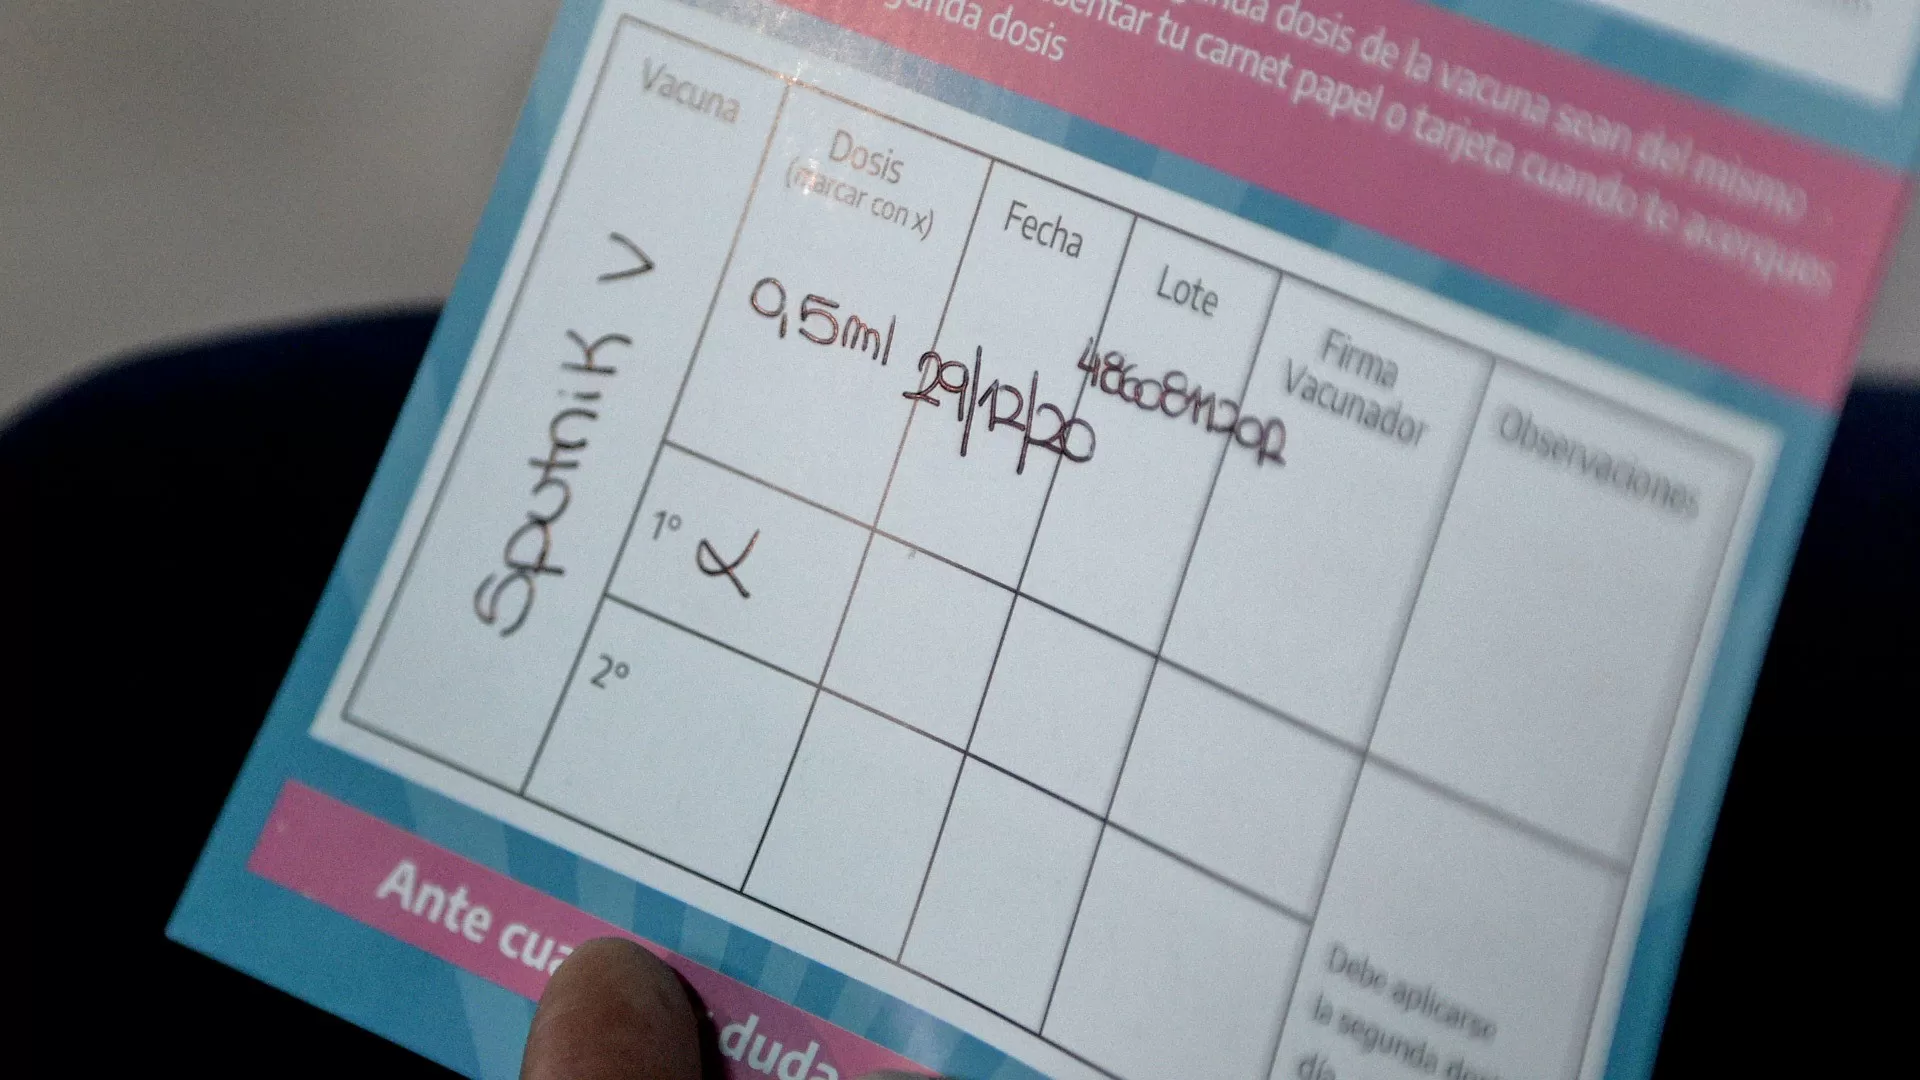 dosis de la vacuna sean del mismo
tu carnet papel o tarjeta cuando te acerques
dosis
Vacuna
Dosis
(marcar con x)
Fecha
Lote
Firma
Vacunador
Observaciones
Sputnik V
0,5ml
29/12/20
1º x
2º
Debe aplicarse
la segunda
día
Ante
duda